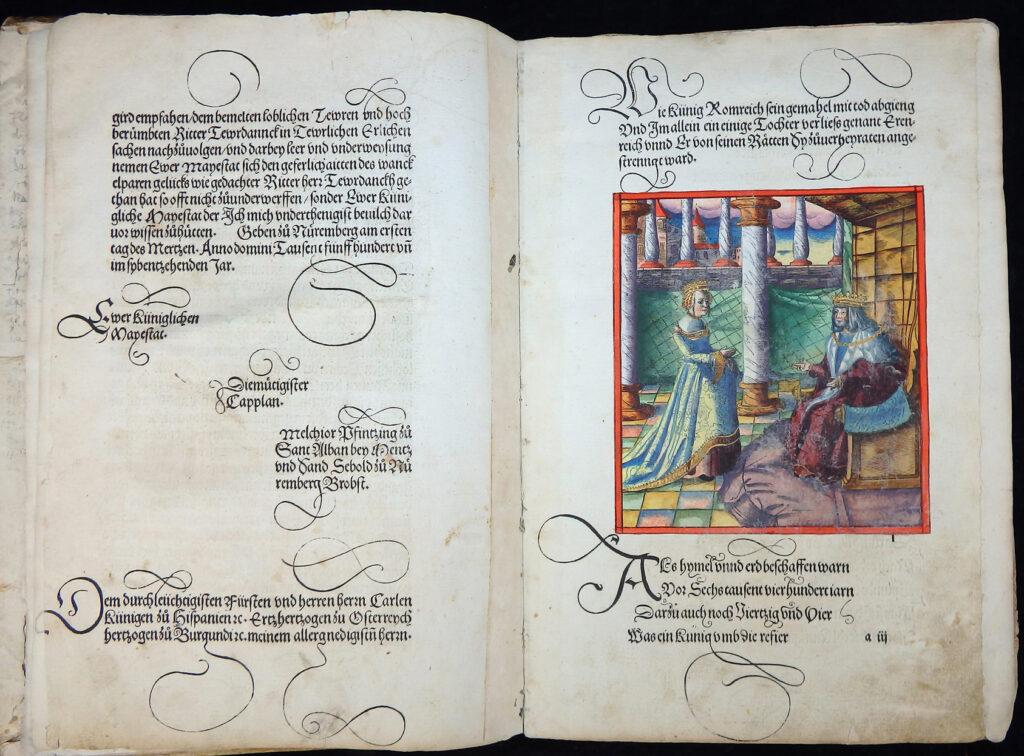 gird empfahen. dem bemelten loblichen Tewren vnd hoch
berümbten Ritter Tewrdannck in Tewrlichen Erlichen
sachen nachzůuolgen/ vnd darbey leer vnd vnderweysung
nemen Ewer Mayestat sich den geferlichaitten des wanck
elparen gelücks wie gedachter Ritter herr Tewrdanckh ge-
than hat so offt nicht zůunderwerffen/ sonder Ewer Küni-
gliche Mayestat der Ich mich vnderthenigist beuilch dar
uor wissen zůhütten. Geben zů Nüremberg am ersten
tag des Mertzen. Anno domini Tausent fünffhundert vñ
im sybentzehenden Jar.
Ewer Küniglichen
Mayestat.
Diemütigister
Capplan.
Melchior Pfintzing zů
Sant Alban bey Mentz
vnd Sand Sebold zů Nů
remberg Brobst.
Dem durchleüchtigisten Fürsten vnd herren herrn Carlen
Künigen zů Hispanien ⁊c. Ertzhertzogen zů Osterreych
hertzogen zů Burgundi ⁊c. meinem allergnedigistñ herrn.
Wie Künig Romreich sein gemahel mit tod abgieng
Vnd Im allein ein einige Tochter verließ genant Eren-
reich vnnd Er von seinen Rätten dy zůuerheyraten ange-
strenngt ward.
Als hymel vnnd erd beschaffen warn
Vor Sechstausent vierhundert iarn
Darzů auch noch Viertzig vnd Vier
Was ein Künig vmb die refier
a iij